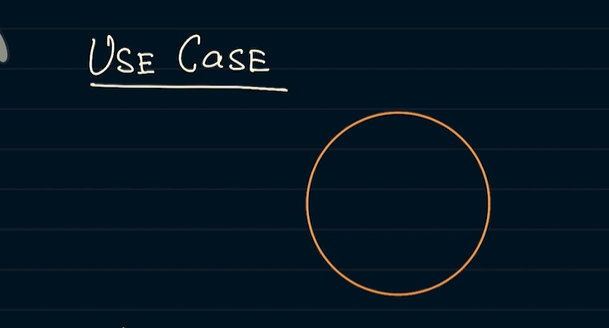 USE CaSE